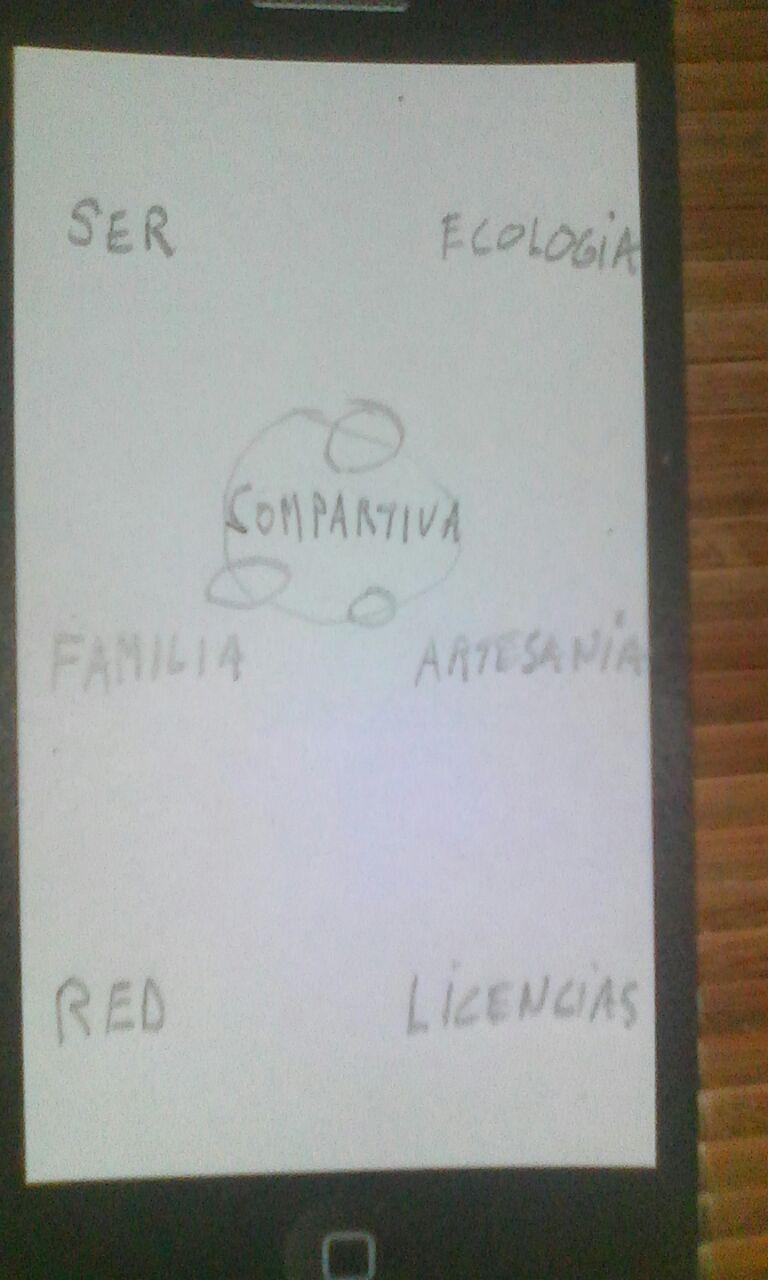 SER
ECOLOGiA
COMPARTIVA
FAMILIA
ARTESANiA
RED
LiCENCiAS